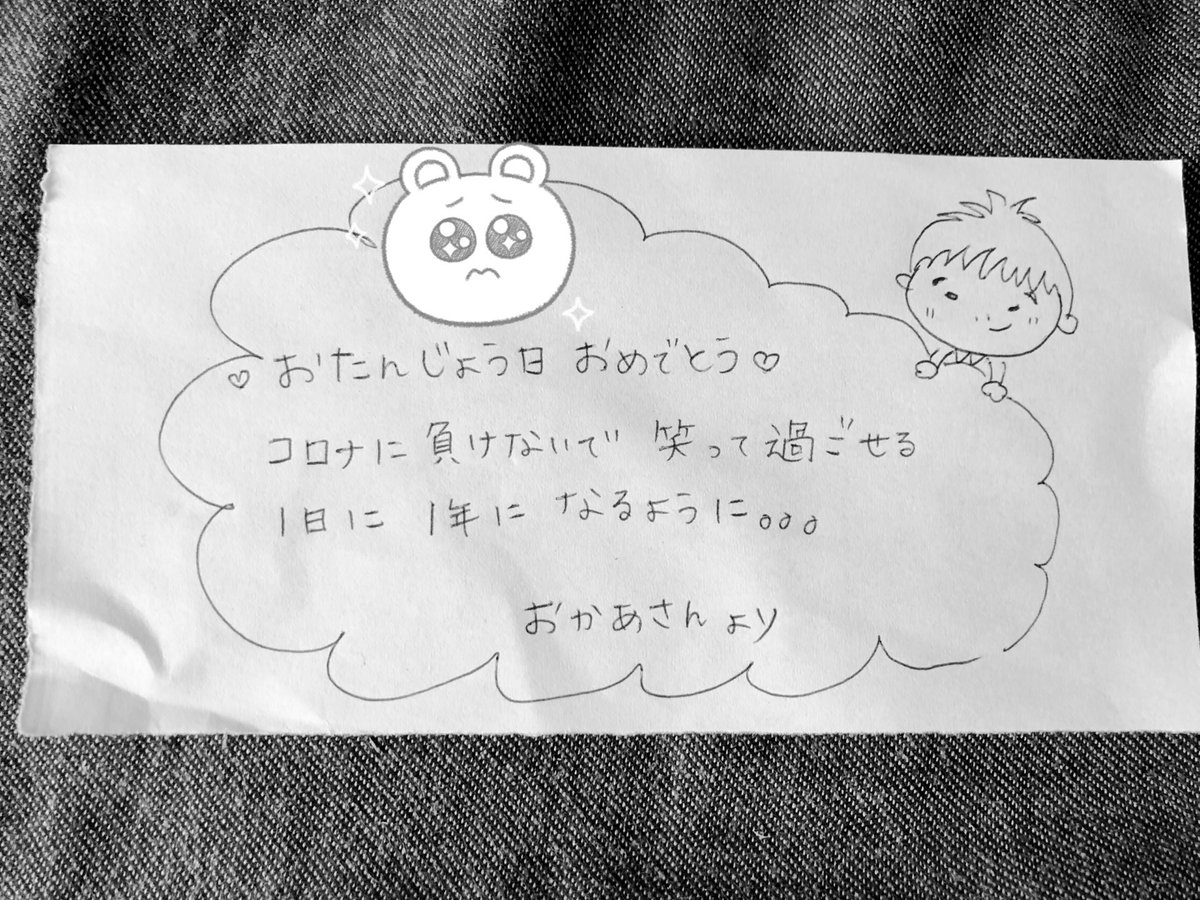 ♡おたんじょう日 おめでとう♡
コロナに負けないで 笑って過ごせる
1日に 1年に なるように。。。
おかあさんより